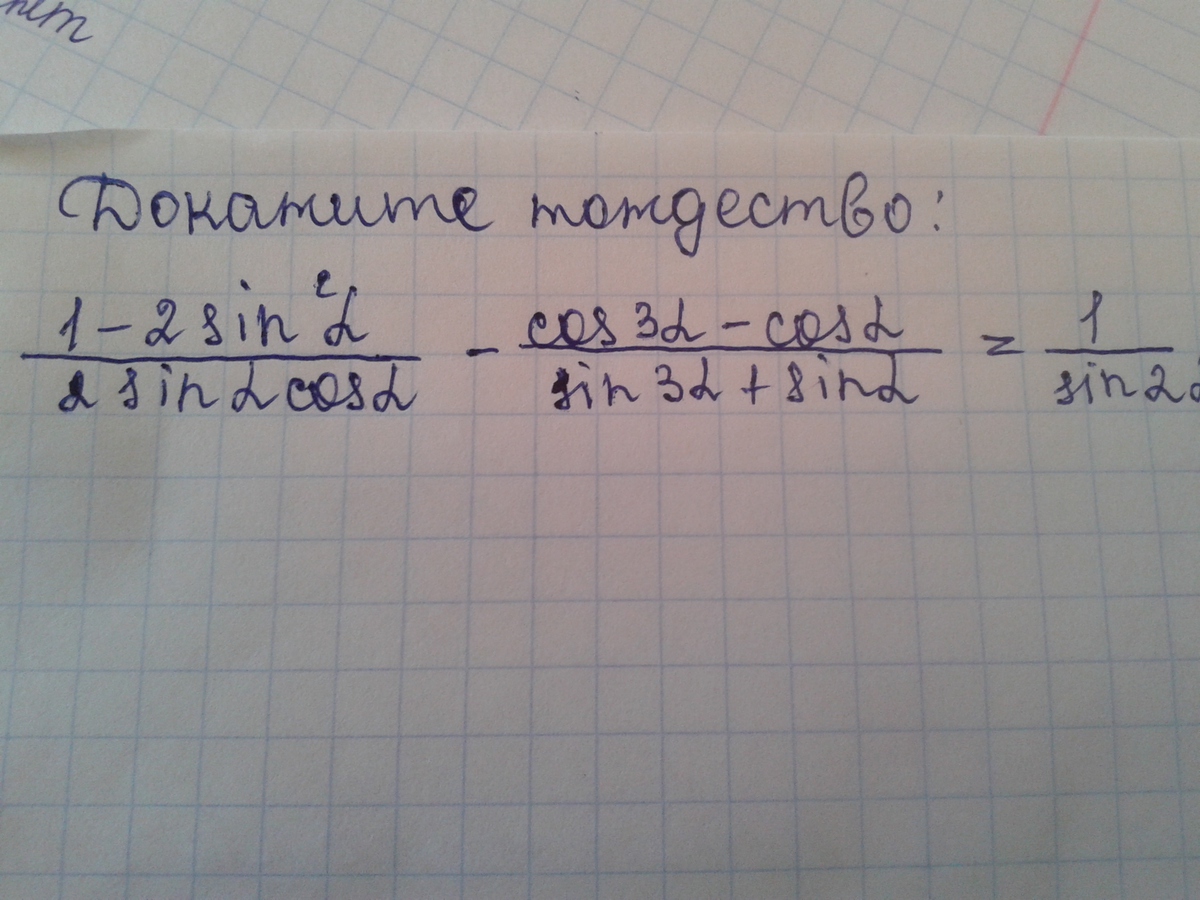 нет
Докажите тождество:
1 - 2 sin²α / 2 sin α cos α - cos 3α - cos α / sin 3α + sin α = 1 / sin 2α